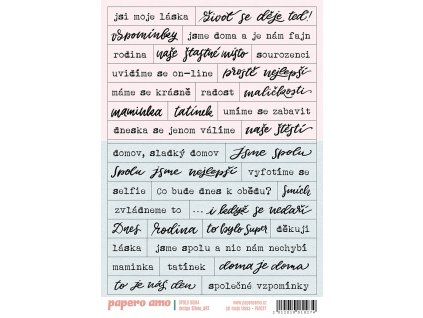 jsi moje láska život se děje teď!
vzpomínky jsme doma a je nám fajn
rodina naše šťastné místo sourozenci
uvidíme se on-line prostě nejlepší
máme se krásně radost maličkosti
maminka tatínek umíme se zabavit
dneska se jenom válíme naše štěstí
domov, sladký domov Jsme spolu
Spolu jsme nejlepší vyfotíme se
selfie Co bude dnes k obědu? Smích
zvládneme to ... i když se nedaří
Dnes rodina to bylo super děkuji
láska jsme spolu a nic nám nechybí
maminka tatínek doma je doma
to je náš den společné vzpomínky
papero amo